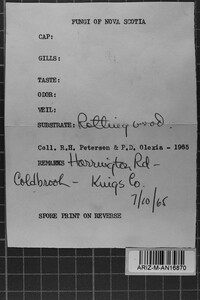 FUNGI OF NOVA SCOTIA
CAP:
GILLS:
TASTE:
ODOR:
VEIL:
SUBSTRATE: Rotting wood.
Coll. R.H. Petersen & P.D. Olexia - 1965
REMARKS Harrington Rd -
Coldbrook - Kings Co.
7/10/65
SPORE PRINT ON REVERSE
ARIZ-M-AN16670